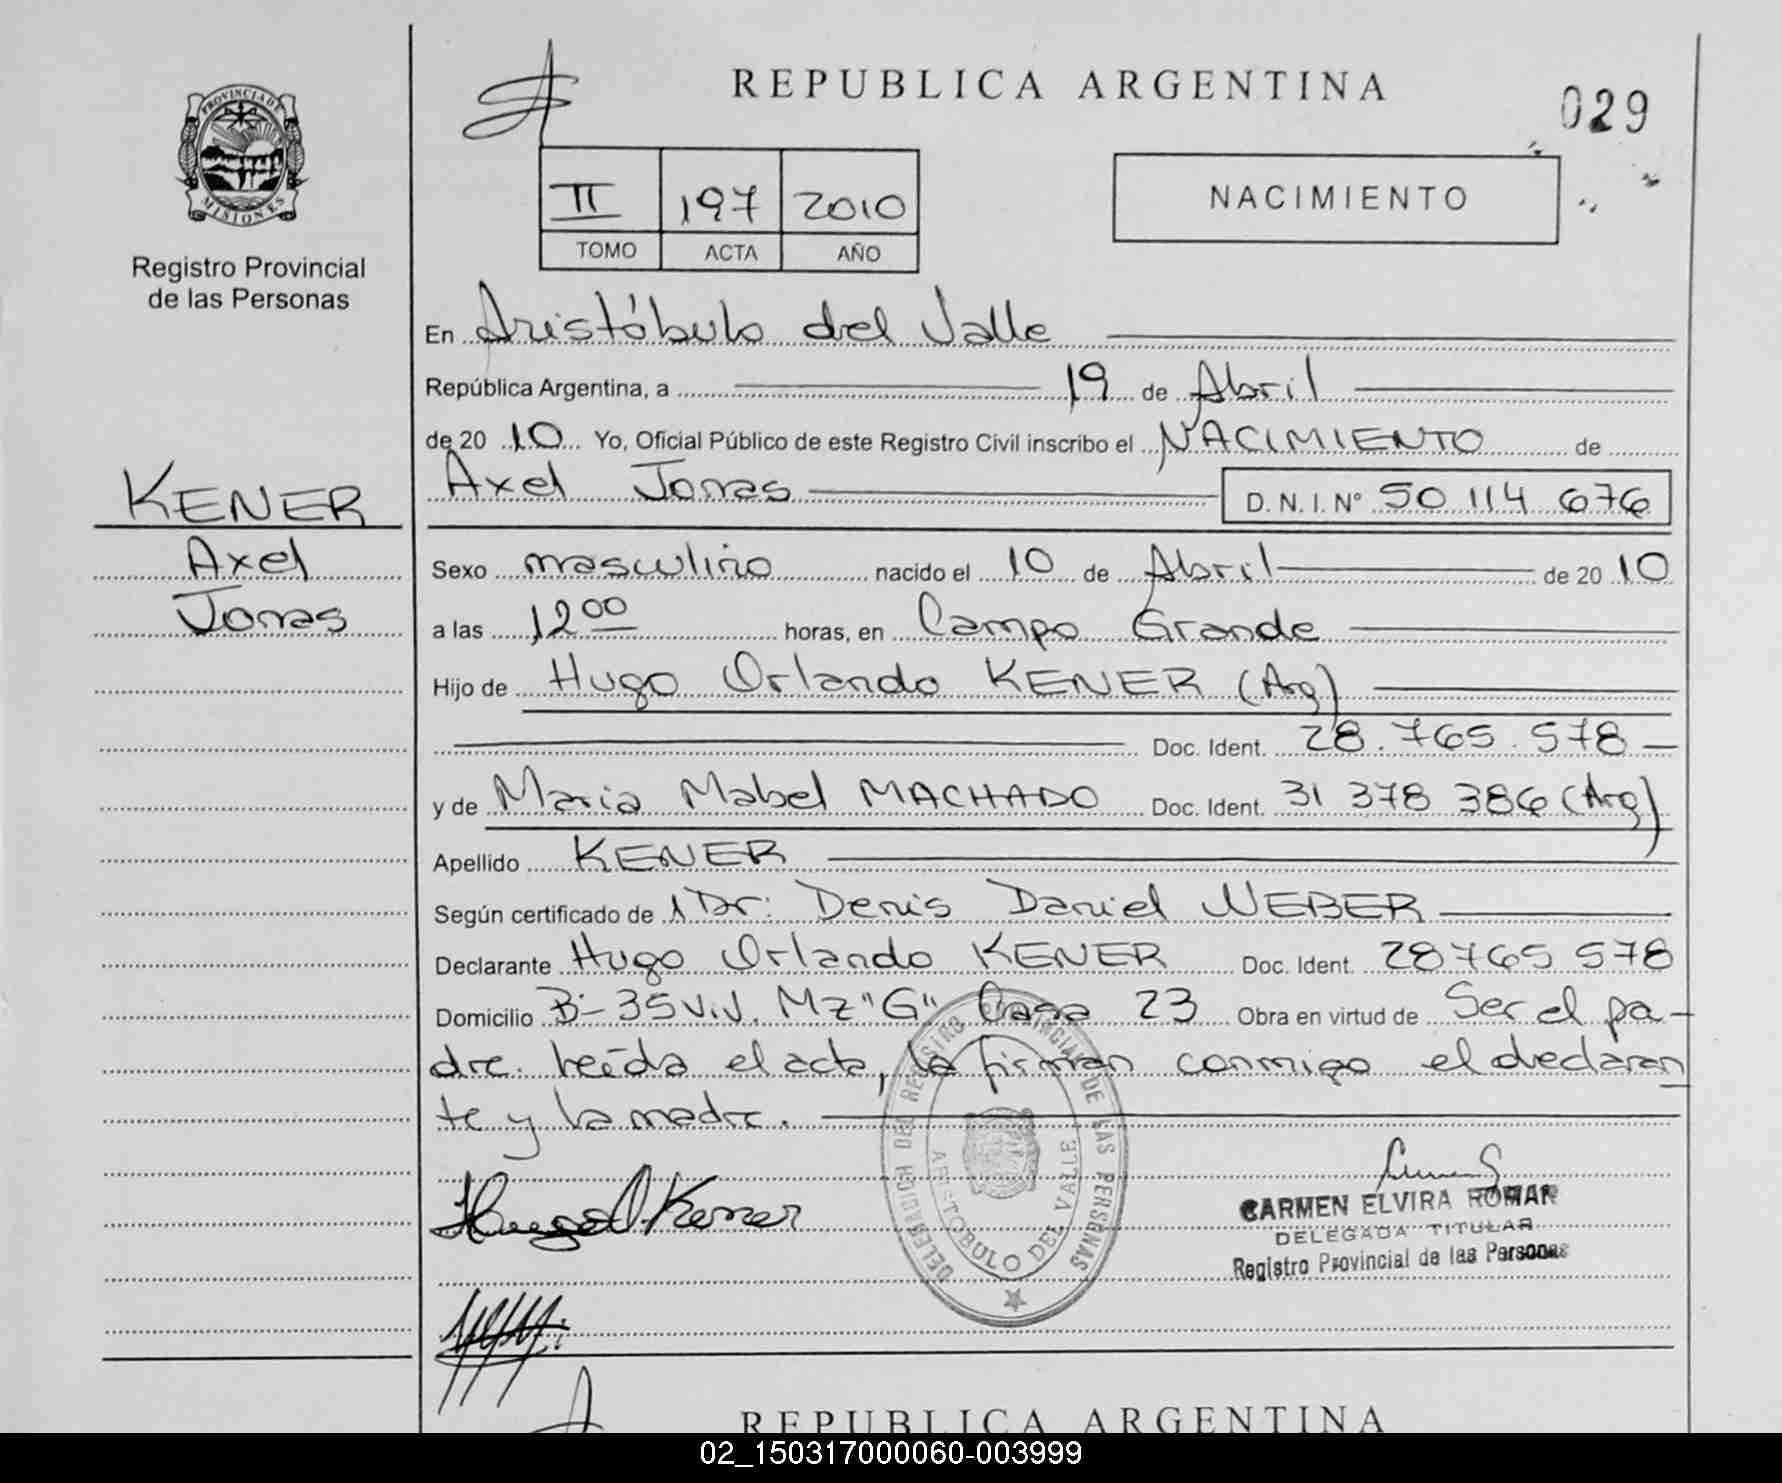 PROVINCIA DE
MISIONES
Registro Provincial
de las Personas
REPUBLICA ARGENTINA
029
II 197 2010
TOMO ACTA AÑO
NACIMIENTO
En Aristóbulo del Valle
República Argentina, a 19 de Abril
de 20 10 Yo, Oficial Público de este Registro Civil inscribo el NACIMIENTO de
KENER
Axel Jonas D. N. I. Nº 50 114 676
Axel
Jonas
Sexo masculino nacido el 10 de Abril de 20 10
a las 12 00 horas, en Campo Grande
Hijo de Hugo Orlando KENER (Arg)
Doc. Ident. 28.765.578
y de Maria Mabel MACHADO Doc. Ident. 31 378 386 (Arg)
Apellido KENER
Según certificado de Dr: Denis Daniel WEBER
Declarante Hugo Orlando KENER Doc. Ident. 28765 578
Domicilio B- 35 Viv. Mz "G" Casa 23 Obra en virtud de Ser el pa-
dre. leída el acta, la firman conmigo el declaran
te y la madre.
Hugo O. Kener
DELEGACION DEL REGISTRO PROVINCIAL DE LAS PERSONAS
ARISTOBULO DEL VALLE
CARMEN ELVIRA ROMAN
DELEGADA TITULAR
Registro Provincial de las Personas
REPUBLICA ARGENTINA
02_150317000060-003999